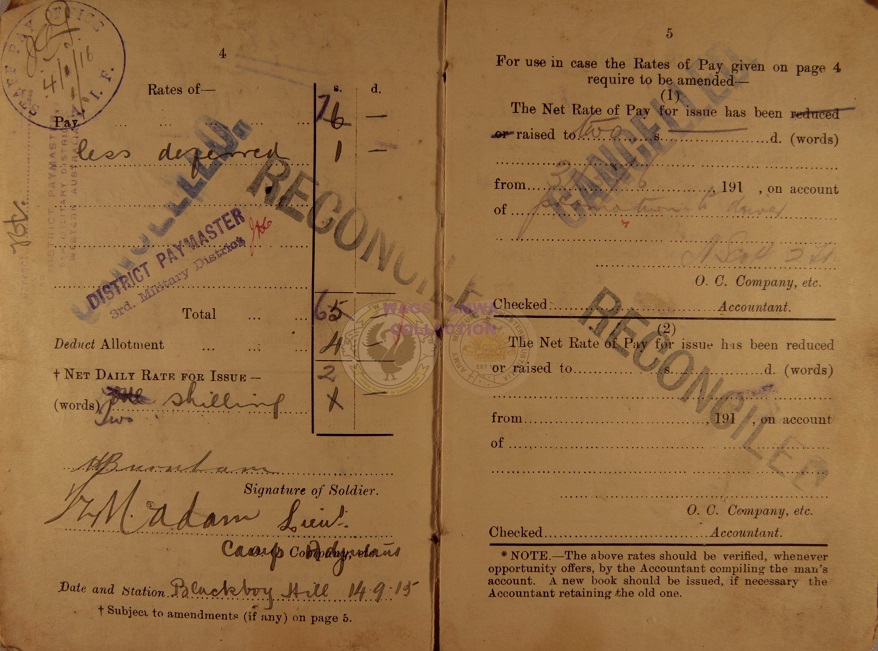 STAFF PAY OFFICE
4/9/16
A. I. F.
4
Rates of—
s. d.
Pay 7 6 —
less deferred 1 —
CANCELLED.
RECONCILED
DISTRICT PAYMASTER
3rd. Military District
DISTRICT PAYMASTER
MILITARY DISTRICT
WESTERN AUSTRALIA
Total 6 5
Deduct Allotment 4 —
† NET DAILY RATE FOR ISSUE— 2
(words) one shilling 1 —
two
Burnham
Signature of Soldier.
M Adam Lieut.
Camp Adjutant
Company, etc.
Date and Station Blackboy Hill 14-9-15
† Subject to amendments (if any) on page 5.
WAGS ANWA
COLLECTION
5
For use in case the Rates of Pay given on page 4
require to be amended—
(1)
The Net Rate of Pay for issue has been reduced
or raised to two s. d. (words)
CANCELLED
from 3 6 , 191 , on account
of promotion to driver
O. C. Company, etc.
Checked Accountant.
RECONCILED
(2)
The Net Rate of Pay for issue has been reduced
or raised to s. d. (words)
from , 191 , on account
of
O. C. Company, etc.
Checked Accountant.
* NOTE.—The above rates should be verified, whenever
opportunity offers, by the Accountant compiling the man's
account. A new book should be issued, if necessary the
Accountant retaining the old one.